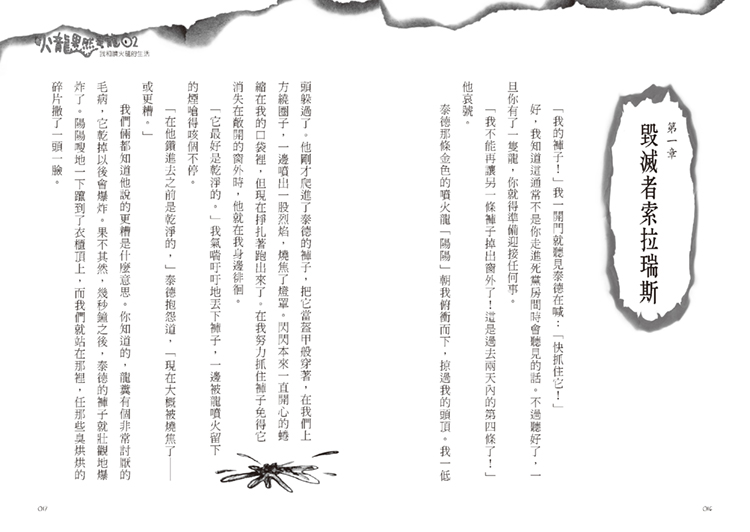 第一章
毀滅者索拉瑞斯
「我的褲子！」我一開門就聽見泰德在喊：「快抓住它！」
好，我知道這通常不是你走進死黨房間時會聽見的話。不過聽好了，一
旦你有了一隻龍，你就得準備迎接任何事。
「我不能再讓另一條褲子掉出窗外了！這是過去兩天內的第四條了！」
他哀號。
泰德那條金色的噴火龍「陽陽」朝我俯衝而下，掠過我的頭頂。我一低
頭躲過了。他剛才爬進了泰德的褲子，把它當盔甲般穿著，在我們上
方繞圈子，一邊噴出一股烈焰，燒焦了燈罩。閃閃本來一直開心的蜷
縮在我的口袋裡，但現在掙扎著跑出來了。在我努力抓住褲子免得它
消失在敞開的窗外時，他就在我身邊徘徊。
「它最好是乾淨的。」我氣喘吁吁地丟下褲子，一邊被龍噴火留下
的煙嗆得咳個不停。
「在他鑽進去之前是乾淨的，」泰德抱怨道，「現在大概被燒焦了——
或更糟。」
我們倆都知道他說的更糟是什麼意思。你知道的，龍糞有個非常討厭的
毛病，它乾掉以後會爆炸。果不其然，幾秒鐘之後，泰德的褲子就壯觀地爆
炸了。陽陽嗖地一下竄到了衣櫃頂上，而我們就站在那裡，任那些臭烘烘的
碎片撒了一頭一臉。
02
我和噴火龍的生活